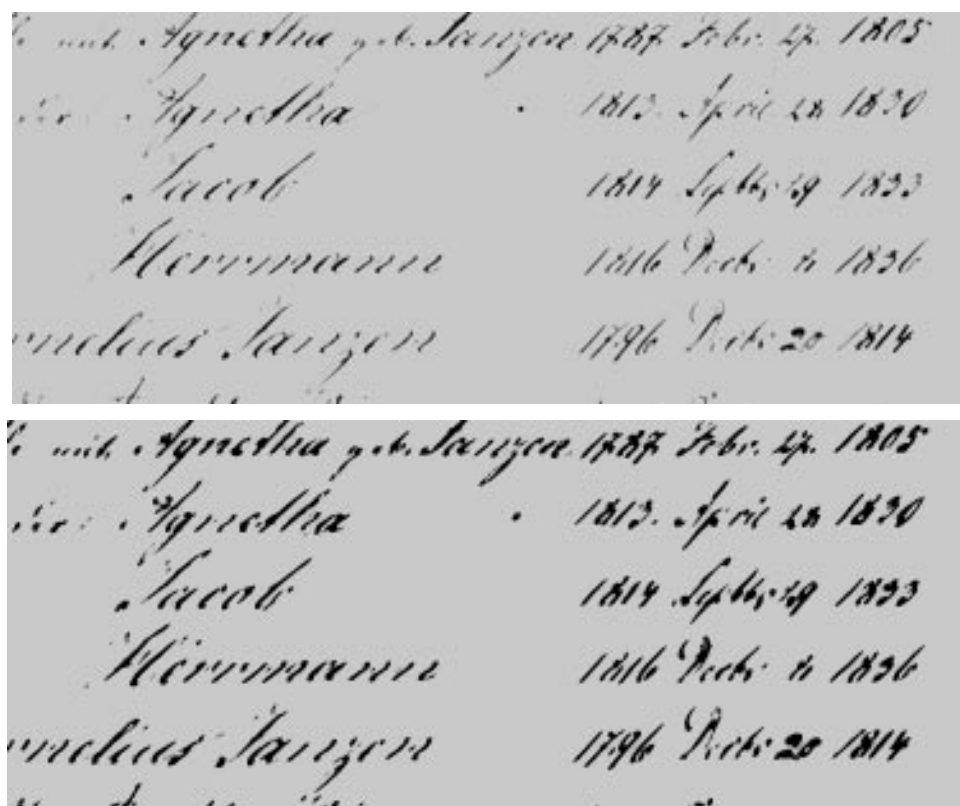 mit Agnetha geb. Janzen 1787 Febr. 27. 1805
Agnetha 1813. April 28 1830
Jacob 1814 Septbr 29 1833
Herrmann 1816 Decbr 1836
Cornelius Janzen 1796 Decbr 20 1814
mit Agnetha geb. Janzen 1787 Febr. 27. 1805
Agnetha 1813. April 28 1830
Jacob 1814 Septbr 29 1833
Herrmann 1816 Decbr 1836
Cornelius Janzen 1796 Decbr 20 1814